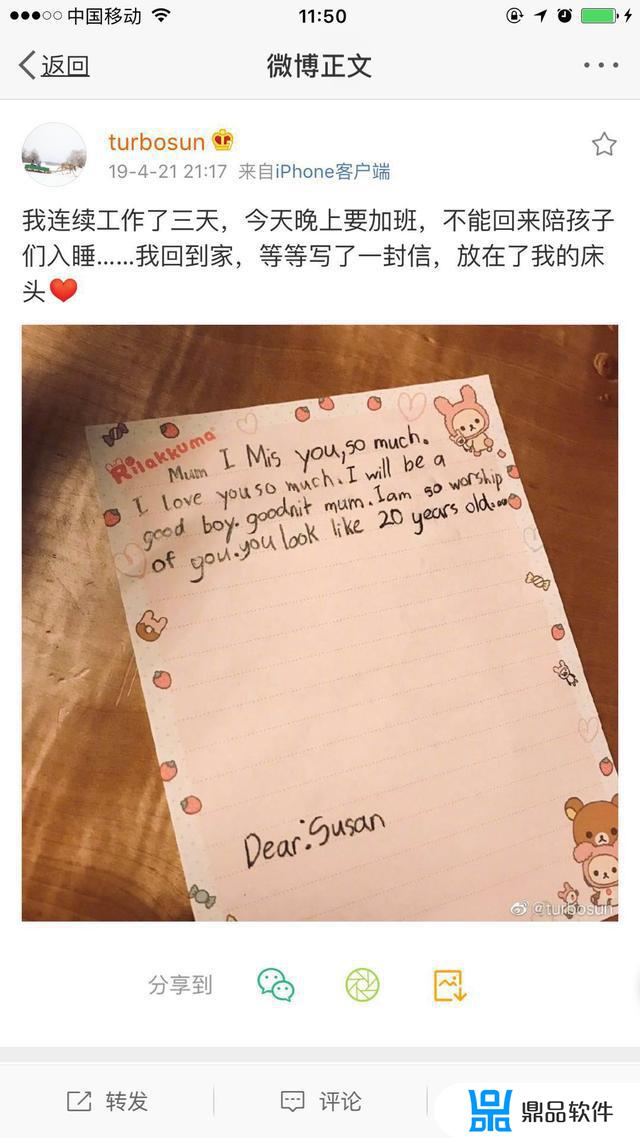 中国移动
11:50
返回
微博正文
turbosun
19-4-21 21:17 来自iPhone客户端
我连续工作了三天，今天晚上要加班，不能回来陪孩子
们入睡……我回到家，等等写了一封信，放在了我的床
头
Rilakkuma
Mum I Mis you,so much.
I love you so much. I will be a
good boy. goodnit mum. I am so worship
of you. you look like 20 years old...
Dear: Susan
@turbosun
分享到
转发
评论
鼎品软件